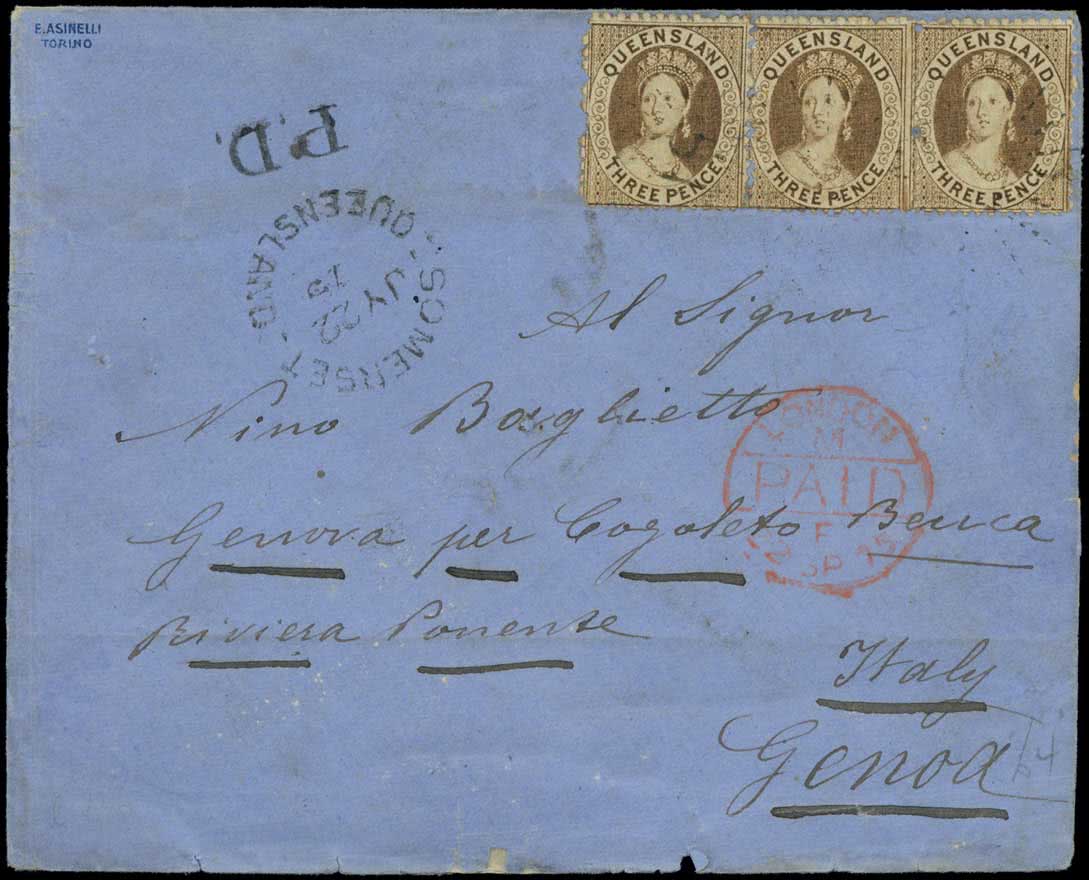 E. ASINELLI
TORINO
QUEENSLAND
THREE PENCE
QUEENSLAND
THREE PENCE
QUEENSLAND
THREE PENCE
P.D.
SOMERSET
QUEENSLAND
JY 22
75
Al Signor
Nino Baglietto
LONDON
M
PAID
F
SP 75
Genova per Cogoleto Beuca
Riviera Ponente
Italy
Genoa
64